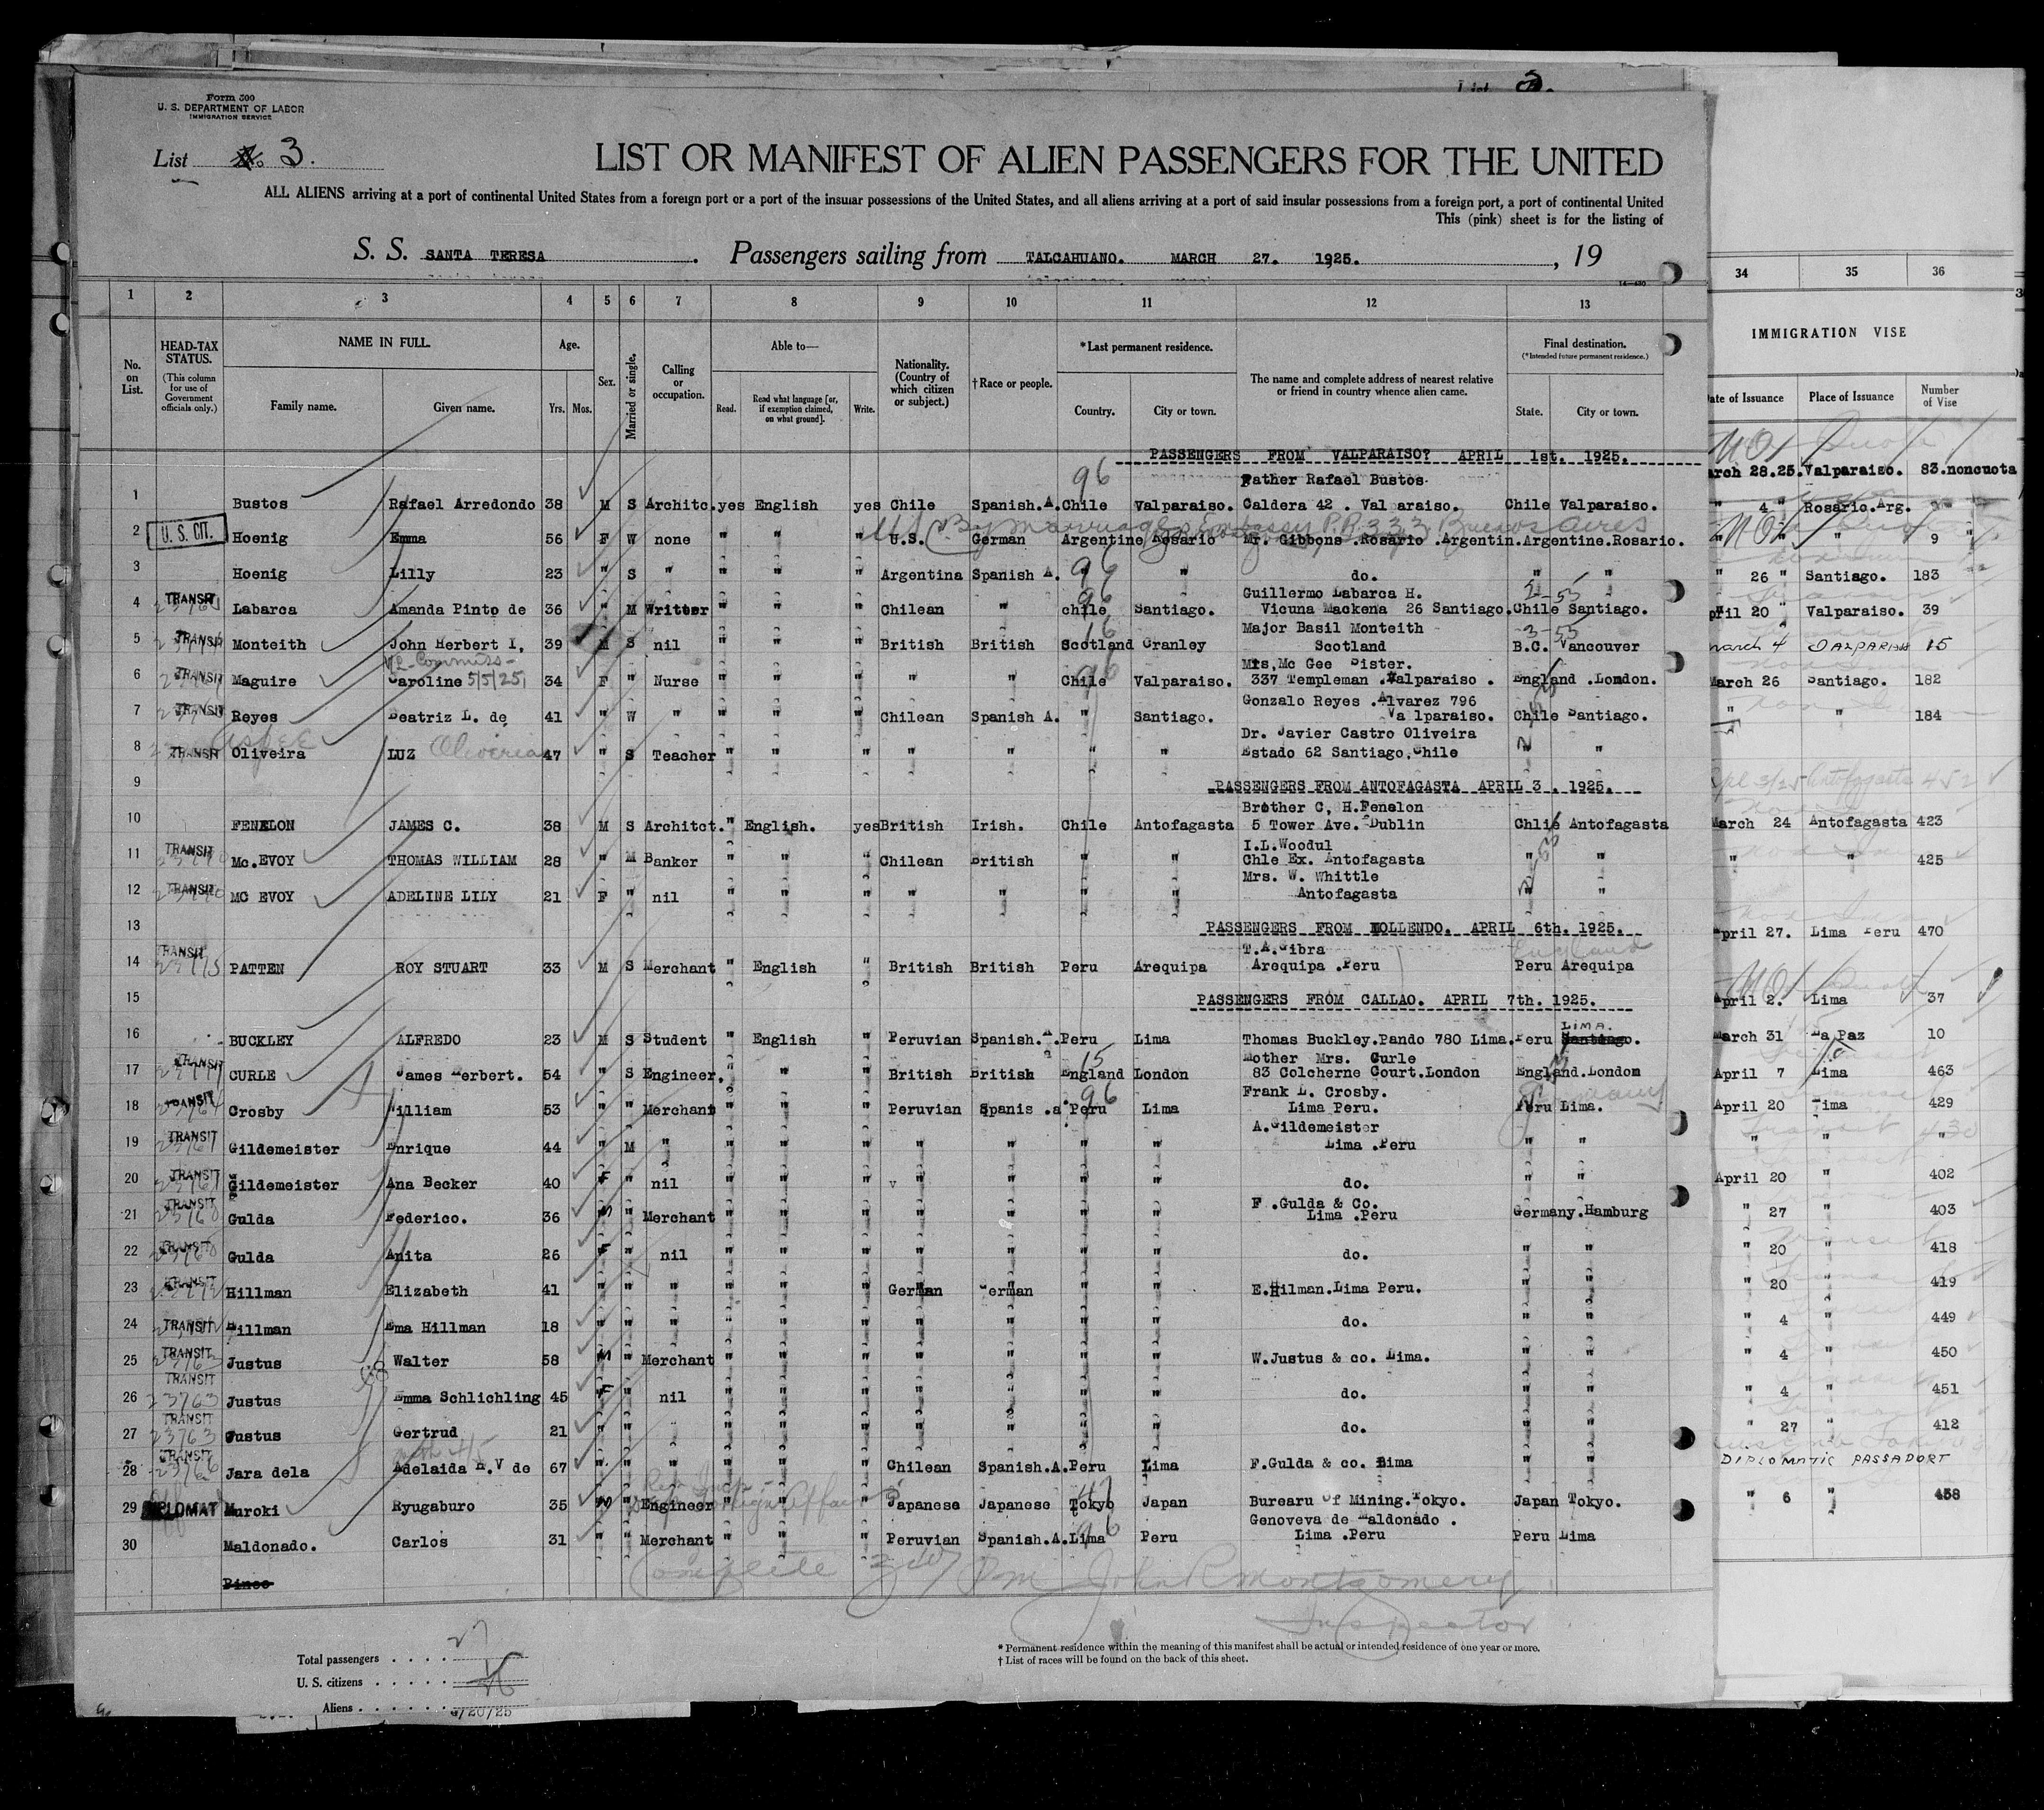 Form 500
U. S. DEPARTMENT OF LABOR
IMMIGRATION SERVICE
List 3.
List 3.
LIST OR MANIFEST OF ALIEN PASSENGERS FOR THE UNITED
ALL ALIENS arriving at a port of continental United States from a foreign port or a port of the insular possessions of the United States, and all aliens arriving at a port of said insular possessions from a foreign port, a port of continental United
This (pink) sheet is for the listing of
S. S. SANTA TERESA. Passengers sailing from TALCAHUANO. MARCH 27. 1925. , 19
1 2 3 4 5 6 7 8 9 10 11 12 13 34 35 36
No. on List.
HEAD-TAX STATUS.
(This column for use of Government officials only.)
NAME IN FULL.
Family name. Given name.
Age.
Yrs. Mos.
Sex.
Married or single.
Calling or occupation.
Able to—
Read. Read what language [or, if exemption claimed, on what ground]. Write.
Nationality. (Country of which citizen or subject.)
†Race or people.
*Last permanent residence.
Country. City or town.
The name and complete address of nearest relative or friend in country whence alien came.
Final destination.
(*Intended future permanent residence.)
State. City or town.
IMMIGRATION VISE
ate of Issuance Place of Issuance Number of Vise
PASSENGERS FROM VALPARAISO? APRIL 1st. 1925.
arch 28.25. Valparaiso. 83.noncuota
96
Father Rafael Bustos.
1 Bustos Rafael Arredondo 38 M S Architc. yes English yes Chile Spanish.A. Chile Valparaiso. Caldera 42 . Val araiso. Chile Valparaiso.
" 4 " Rosario.Arg.
By marriage Embassy P.P. 333 Buenos Aires
2 U. S. CIT. Hoenig Emma 56 F W none " " " U.S. German Argentine Rosario Mr. Gibbons .Rosario .Argentin. Argentine.Rosario.
" " " 9 "
3 Hoenig Lilly 23 " S " " " " Argentina Spanish A. " " do. " "
96
" 26 " Santiago. 183
96
Guillermo Labarca H.
4 TRANSIT Labarca Amanda Pinto de 36 " M Writter " " " Chilean " chile Santiago. Vicuna Mackena 26 Santiago. Chile Santiago.
pril 20 " Valparaiso. 39
16
Major Basil Monteith
3-55
5 TRANSIT Monteith John Herbert I, 39 M S nil " " " British British Scotland Cranley Scotland B.C. Vancouver
march 4 15
Mrs,Mc Gee Sister.
6 TRANSIT Maguire Caroline 5/5/25 34 F " Nurse " " " " " Chile Valparaiso. 337 Templeman .Valparaiso . England .London.
March 26 Santiago. 182
Gonzalo Reyes .Alvarez 796
7 TRANSIT Reyes Beatriz L. de 41 " W " " " " Chilean Spanish A. " Santiago. Va lparaiso. Chile Santiago.
" " 184
Dr. Javier Castro Oliveira
8 TRANSIT Oliveira LUZ 47 " S Teacher " " " " " " " Estado 62 Santiago.Chile " "
9
PASSENGERS FROM ANTOFAGASTA APRIL 3 . 1925.
3/25 Antofagasta 452
Brother C, H.Fenelon
10 FENELON JAMES C. 38 M S Architct. " English. yes British Irish. Chile Antofagasta 5 Tower Ave. Dublin Chlie Antofagasta
March 24 Antofagasta 423
I.L.Woodul
11 TRANSIT Mc.EVOY THOMAS WILLIAM 28 " M Banker " " " Chilean British " " Chle Ex. Antofagasta " "
" " 425
Mrs. W. Whittle
12 TRANSIT MC EVOY ADELINE LILY 21 F " nil " " " " " " " Antofagasta " "
13
PASSENGERS FROM MOLLENDO. APRIL 6th. 1925.
April 27. Lima Peru 470
T.A.Gibra
England
14 TRANSIT PATTEN ROY STUART 33 M S Merchant " English " British British Peru Arequipa Arequipa .Peru Peru Arequipa
15
PASSENGERS FROM CALLAO. APRIL 7th. 1925.
April 2. Lima 37
LIMA.
16 BUCKLEY ALFREDO 23 M S Student " English " Peruvian Spanish.A. Peru Lima Thomas Buckley.Pando 780 Lima. Peru Santiago.
March 31 La Paz 10
15
Mother Mrs. Curle
17 TRANSIT CURLE James Herbert. 54 " S Engineer. " " " British British England London 83 Colcherne Court.London England.London
April 7 Lima 463
96
Frank L. Crosby.
18 TRANSIT Crosby William 53 " " Merchant " " " Peruvian Spanis .a Peru Lima Lima Peru. Peru Lima.
April 20 Lima 429
A.Gildemeister
19 TRANSIT Gildemeister Enrique 44 " M " " " " " " " " Lima .Peru " "
" " 430 "
20 TRANSIT Gildemeister Ana Becker 40 F " nil " " " " " " " do. " "
April 20 " 402
F .Gulda & Co.
21 TRANSIT Gulda Federico. 36 M " Merchant " " " " " " " Lima .Peru Germany.Hamburg
" 27 " 403
22 TRANSIT Gulda Anita 26 F " nil " " " " " " " do. " "
" 20 " 418
23 TRANSIT Hillman Elizabeth 41 " " " " " " German German " " E.Hilman.Lima Peru. " "
" 20 " 419
24 TRANSIT Hillman Ema Hillman 18 " " " " " " " " " " do. " "
" 4 " 449
25 TRANSIT Justus Walter 58 M " Merchant " " " " " " " W.Justus & co. Lima. " "
" 4 " 450
26 TRANSIT 23763 Justus Emma Schlichling 45 F " nil " " " " " " " do. " "
" 4 " 451
27 TRANSIT 23763 Justus Gertrud 21 " " " " " " " " " " do. " "
" 27 " 412
28 TRANSIT Jara dela Adelaida H.V de 67 " " " " " " Chilean Spanish.A. Peru Lima F.Gulda & co. Lima " "
DIPLOMATIC PASSAPORT
29 DIPLOMAT Muroki Ryugaburo 35 M " Engineer " " " Japanese Japanese Tokyo Japan Burearu Of Mining.Tokyo. Japan Tokyo.
" 6 " 458
Genoveva de Maldonado .
30 Maldonado. Carlos 31 " " Merchant " " " Peruvian Spanish.A. Lima Peru Lima .Peru Peru Lima
Pinee
Complete John R Montgomery
Inspector
Total passengers . . . . 27
U. S. citizens . . . . . 1
Aliens . . . . . . 26
* Permanent residence within the meaning of this manifest shall be actual or intended residence of one year or more.
† List of races will be found on the back of this sheet.
4/20/25